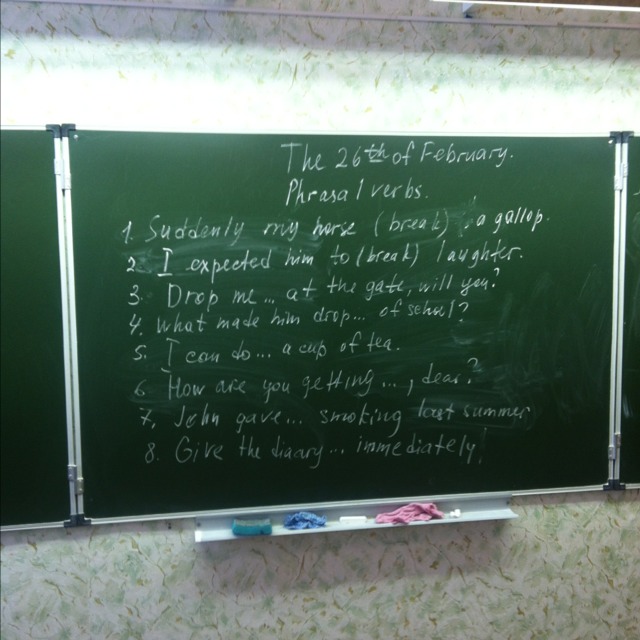 The 26th of February.
Phrasal verbs.
1. Suddenly my horse (break) .. a gallop.
2. I expected him to (break) laughter.
3. Drop me... at the gate, will you?
4. What made him drop... of school?
5. I can do... a cup of tea.
6 How are you getting..., dear?
7. John gave... smoking last summer
8. Give the diaary... immediately!